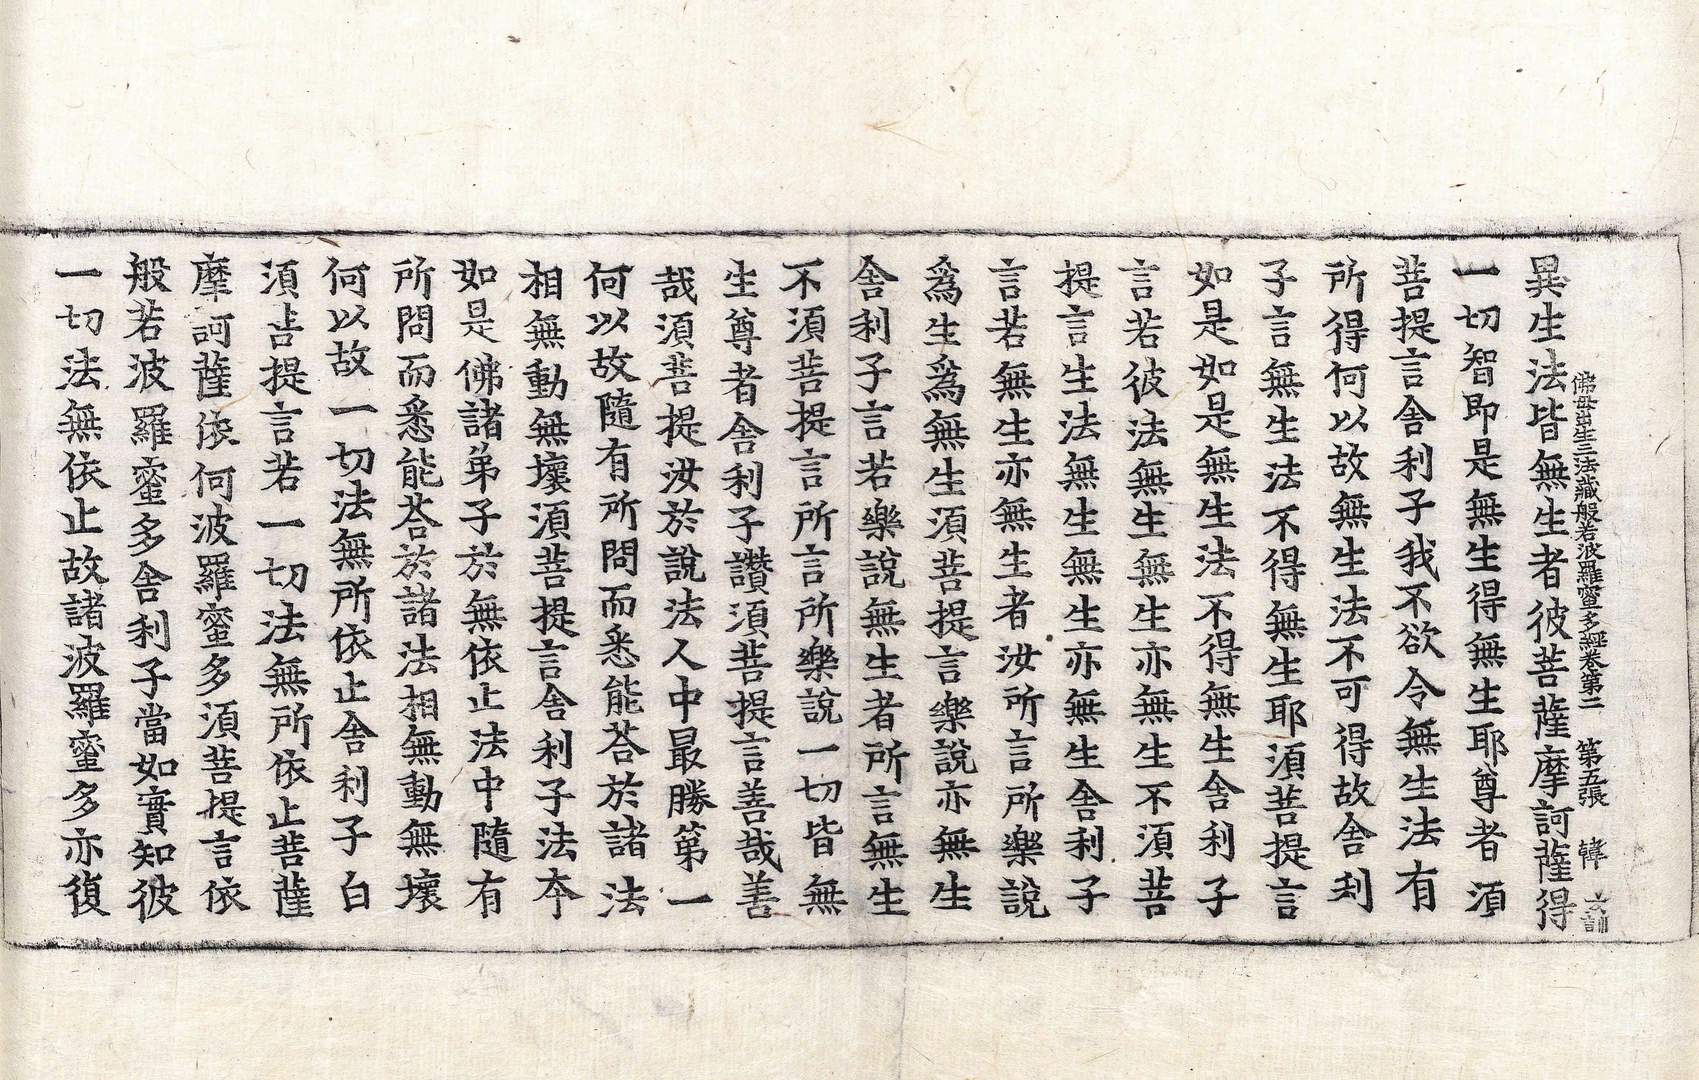 佛母出生三法藏般若波羅蜜多經卷第二　第五張　韓
異生法皆無生者彼菩薩摩訶薩得
一切智即是無生得無生耶尊者須
菩提言舍利子我不欲令無生法有
所得何以故無生法不可得故舍利
子言無生法不得無生耶須菩提言
如是如是無生法不得無生舍利子
言若彼法無生無生亦無生不須菩
提言生法無生無生亦無生舍利子
言若無生亦無生者汝所言所樂說
爲生爲無生須菩提言樂說亦無生
舍利子言若樂說無生者所言無生
不須菩提言所言所樂說一切皆無
生尊者舍利子讚須菩提言善哉善
哉須菩提汝於說法人中最勝第一
何以故隨有所問而悉能荅於諸法
相無動無壞須菩提言舍利子法夲
如是佛諸弟子於無依止法中隨有
所問而悉能荅於諸法相無動無壞
何以故一切法無所依止舍利子白
須菩提言若一切法無所依止菩薩
摩訶薩依何波羅蜜多須菩提言依
般若波羅蜜多舍利子當如實知彼
一切法無依止故諸波羅蜜多亦復